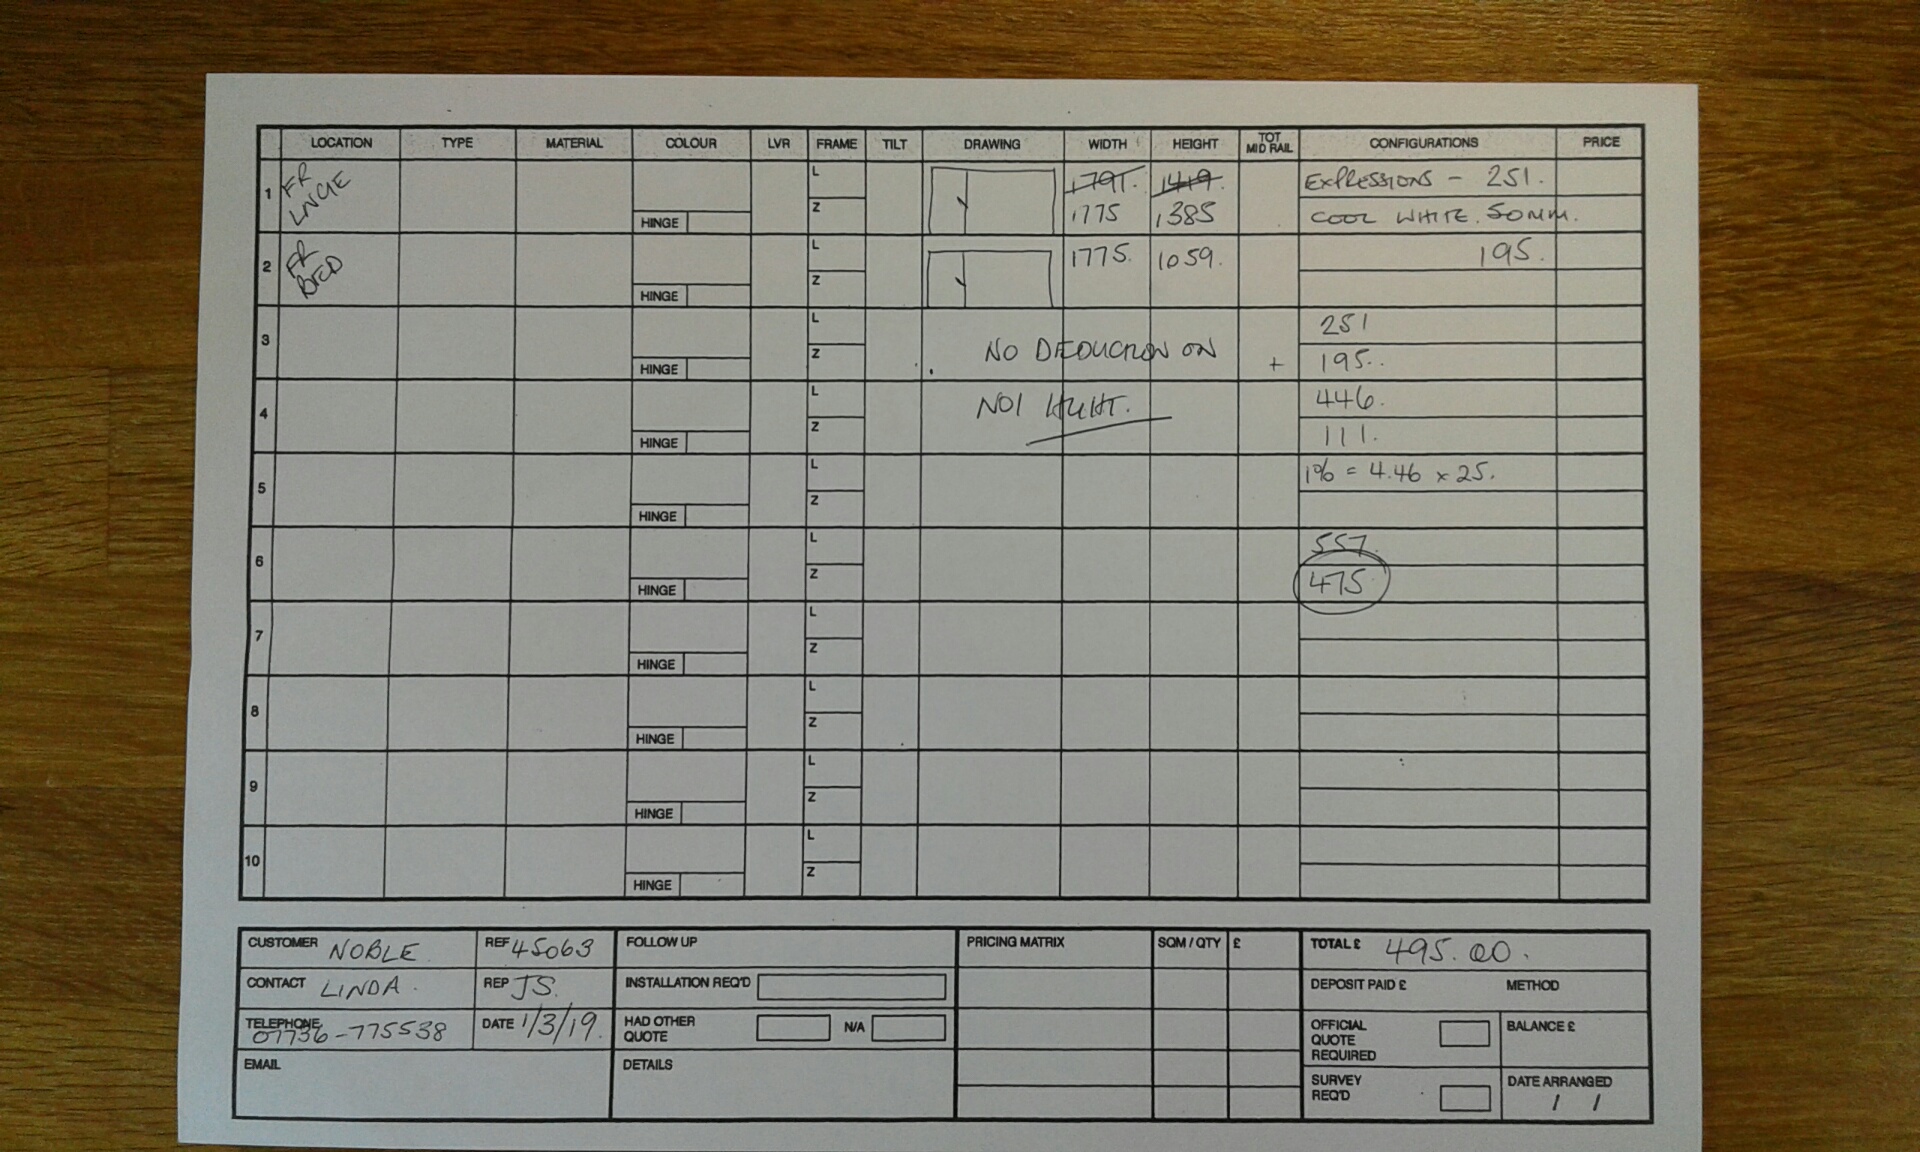 LOCATION TYPE MATERIAL COLOUR LVR FRAME TILT DRAWING WIDTH HEIGHT TOT MID RAIL CONFIGURATIONS PRICE
1 FR LNGE HINGE L Z 1791. 1419. EXPRESSIONS - 251.
1775 1385 COOL WHITE. 50MM.
2 FR BED HINGE L Z 1775. 1059. 195.
3 HINGE L Z 251
NO DEDUCTION ON + 195.
4 HINGE L Z 446.
NO1 HGHT. 111.
5 HINGE L Z 1% = 4.46 x 25.
6 HINGE L Z 557.
475
7 HINGE L Z
8 HINGE L Z
9 HINGE L Z
10 HINGE L Z
CUSTOMER NOBLE REF 45063 FOLLOW UP PRICING MATRIX SQM / QTY £ TOTAL £ 495.00.
CONTACT LINDA. REP JS. INSTALLATION REQ'D DEPOSIT PAID £ METHOD
TELEPHONE 07736-775538 DATE 1/3/19. HAD OTHER QUOTE N/A OFFICIAL QUOTE REQUIRED BALANCE £
EMAIL DETAILS SURVEY REQ'D DATE ARRANGED / /